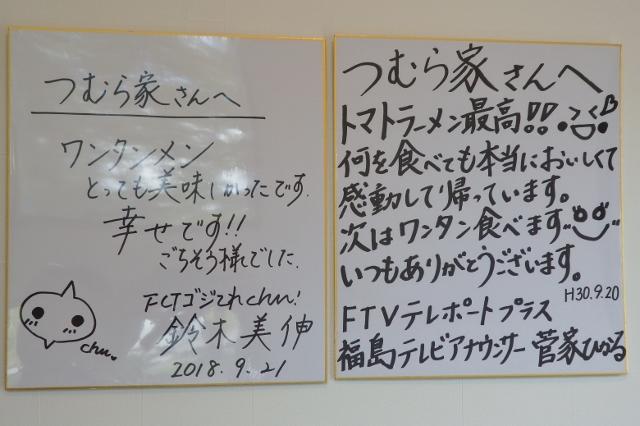 つむら家さんへ
ワンタンメン
とっても美味しかったです.
幸せです!!
ごちそう様でした.
FCTゴジてれchu!
鈴木美伸
2018.9.21
chu.
つむら家さんへ
トマトラーメン最高!!
何を食べても本当においしくて
感動して帰っています。
次はワンタン食べます
いつもありがとうございます。
H30.9.20
FTVテレポートプラス
福島テレビアナウンサー 菅家ひかる